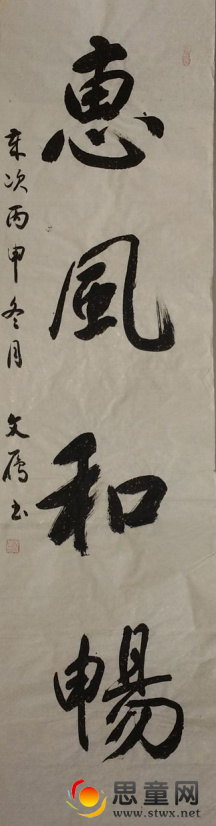 惠風和暢
歲次丙申冬月 文雁书
思童网
www.stwx.net